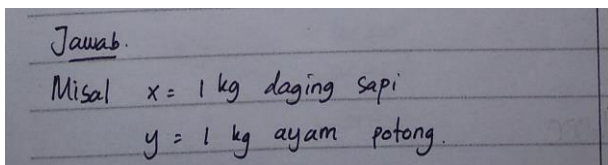 Jawab.
Misal x = 1 kg daging sapi
y = 1 kg ayam potong.